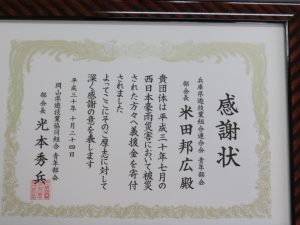 感謝状
兵庫県遊技業組合連合会 青年部会
部会長 米田邦広殿
貴団体は平成三十年七月の
西日本豪雨災害において被災
された方々へ義援金を寄付
されました
よってここにそのご厚志に対して
深く感謝の意を表します
平成三十年十月二十四日
岡山県遊技業協同組合 青年部会
部会長 光本秀兵